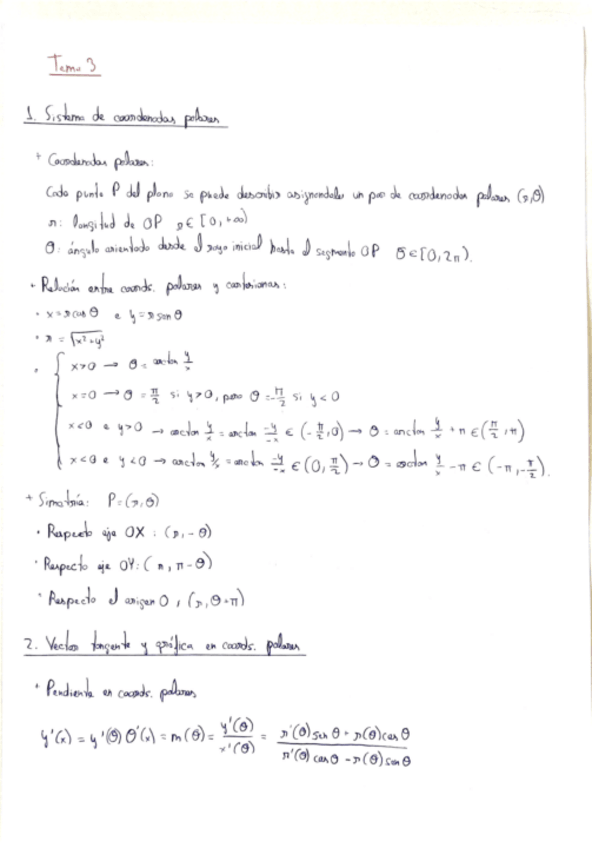 Tema 3
1. Sistema de coordenadas polares
+ Coordenadas polares:
Cada punto P del plano se puede describir asignandole un par de coordenadas polares (r,θ)
r: longitud de OP r∈[0,+∞)
θ: ángulo orientado desde el rayo inicial hasta el segmento OP θ∈[0,2π).
+ Relación entre coords. polares y cartesianas:
• x=r cos θ e y=r sen θ
• r = √x²+y²
• { x>0 → θ = arctan y/x
x=0 → θ = π/2 si y>0, pero θ=-π/2 si y<0
x<0 e y>0 → arctan y/x = arctan -y/-x ∈ (-π/2,0) → θ = arctan y/x + π ∈ (π/2,π)
x<0 e y<0 → arctan y/x = arctan -y/-x ∈ (0,π/2) → θ = arctan y/x - π ∈ (-π,-π/2).
+ Simetría: P=(r,θ)
• Respecto eje OX : (r,-θ)
• Respecto eje OY: (r, π-θ)
• Respecto el origen O : (r,θ+π)
2. Vector tangente y gráfica en coords. polares
+ Pendiente en coords. polares
y'(x) = y'(θ) θ'(x) = m(θ) = y'(θ)/x'(θ) = r'(θ) sen θ + r(θ) cos θ / r'(θ) cos θ - r(θ) sen θ